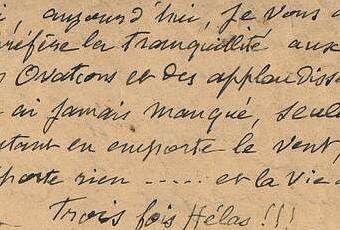 , aujourd'hui, je vous a
préfère la tranquillité aux
Ovations et des applaudiss
ai jamais manqué, seul
autant en emporte le vent,
porte rien ..... et la vie
Trois fois Hélas !!!